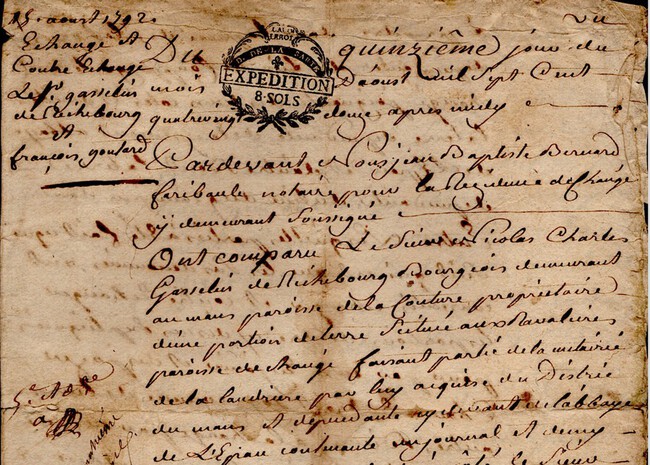 15 aoust 1792
Echange et
Contre Echange
Le Sr gasselin
de Richebourg
et
françois goutard
D. DE LA SARTE
EXPEDITION
8·SOLS
vu
Du quinzième jour du
mois Daoust mil Sept Cent
quatrevingt douze apres midy
Pardevant Nous jean Baptiste Bernard
faribault notaire pour la Residence de Changé
y demeurant Soussigné
Ont comparu Le Sieur Nicolas Charles
Gasselin de Richebourg Bourgeois demeurant
au mans paroisse de la Couture proprietaire
d'une portion de terre Scituée aux Ravalieres
paroisse de changé faisant partie de la métairie
de la landriere par luy acquise du District
du mans et dependante cy devant de l'abbaye
De L'Epau contenante un journal et demy
le Sieur